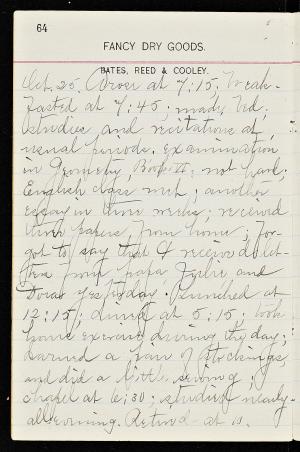 64
FANCY DRY GOODS.
BATES, REED & COOLEY.
Oct. 25. Arose at 7:15. Break-
fasted at 7:45; made bed.
Studies and recitations at
usual periods. Examination
in Geometry, Book II; not hard;
English class met; another
essay in three weeks; received
three papers from home; For-
got to say that I received let-
ters from papa Julie and
Dora yesterday. Lunched at
12:15; dined at 5:15; took
some exercise during the day;
Darned a pair of stockings,
and did a little sewing;
Chapel at 6:30; studied nearly
all evening. Retired at 10.